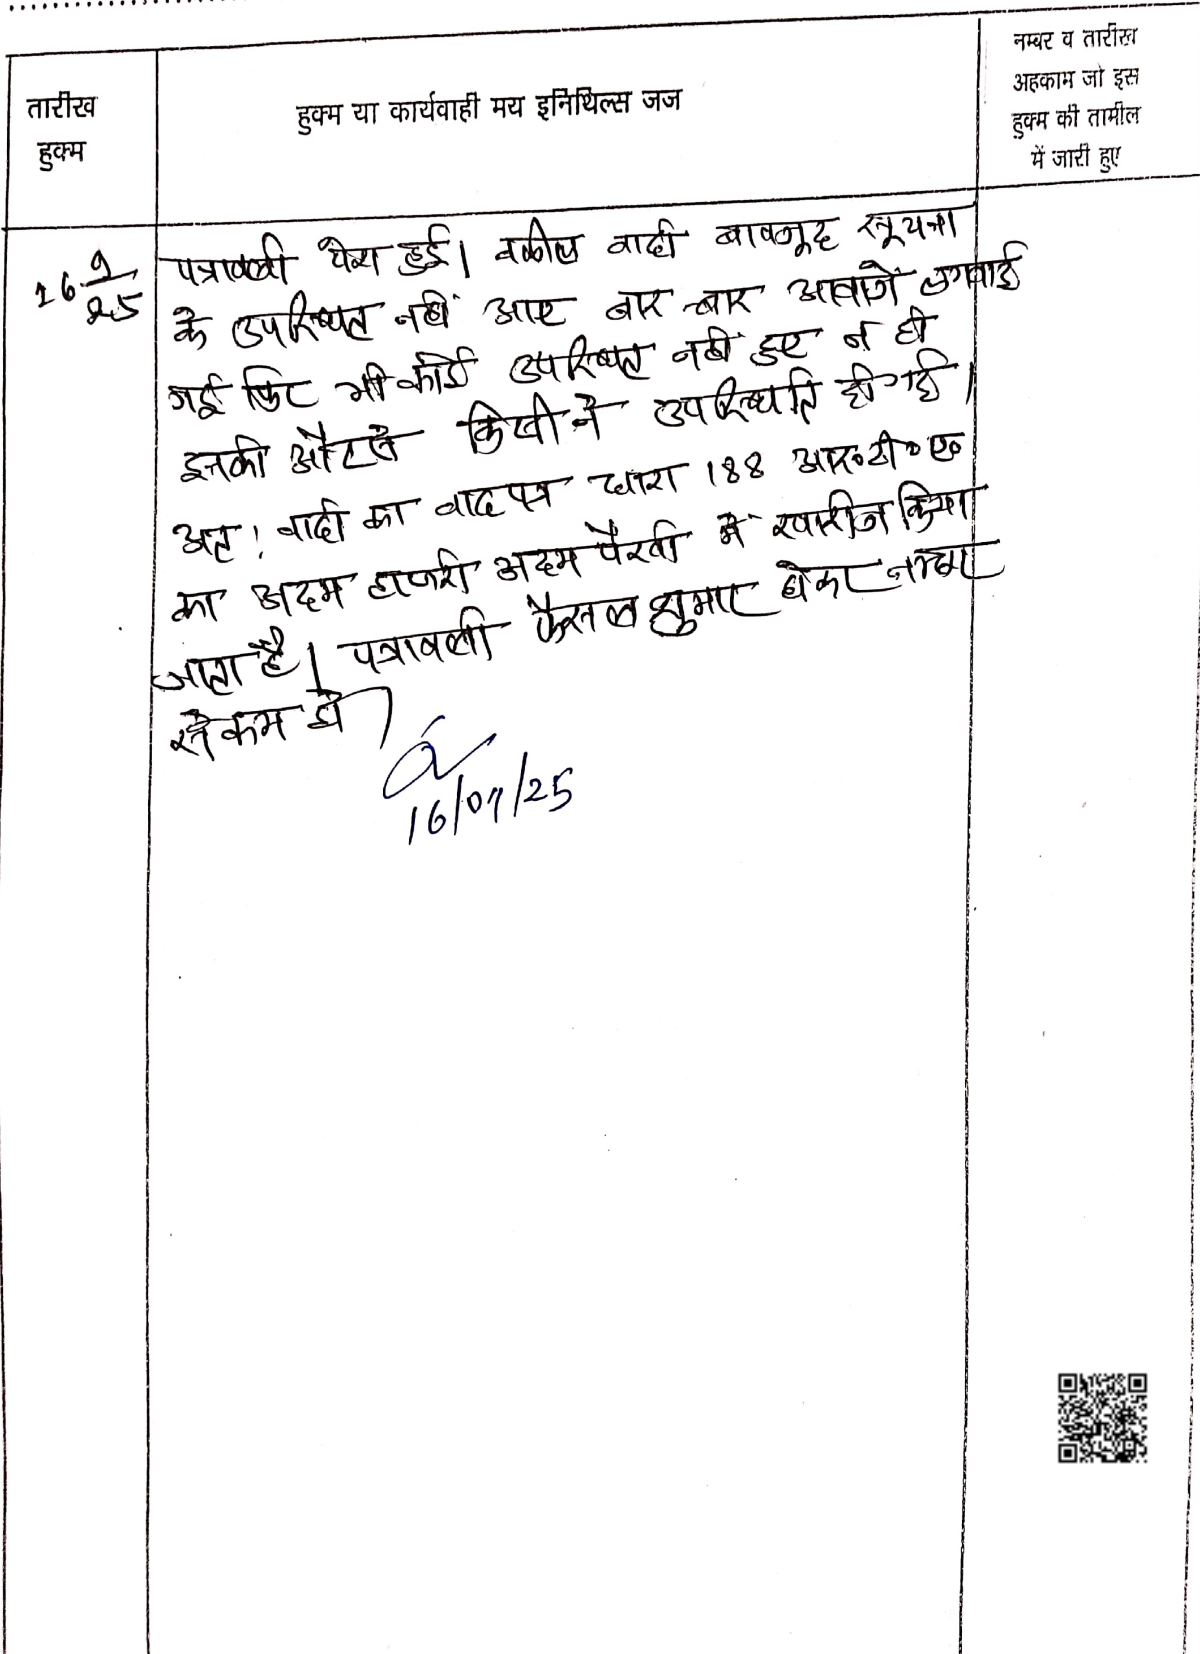 तारीख
हुक्म
हुक्म या कार्यवाही मय इनिथिल्स जज
नम्बर व तारीख
अहकाम जो इस
हुक्म की तामील
में जारी हुए
16 9/25
पत्रावली पेश हुई। वकील वादी बावजूद सूचना
के उपस्थित नहीं आए बार-बार आवाजें लगवाई
गई फिर भी कोई उपस्थित नहीं हुए न ही
इनकी ओर से किसी ने उपस्थिति दी गई।
अतः वादी का वाद पत्र धारा 188 आर॰टी॰ए॰
का अदम हाजरी अदम पैरवी में खारीज किया
जाता है। पत्रावली फैसल शुमार होकर नम्बर
से कम हो।
16/09/25